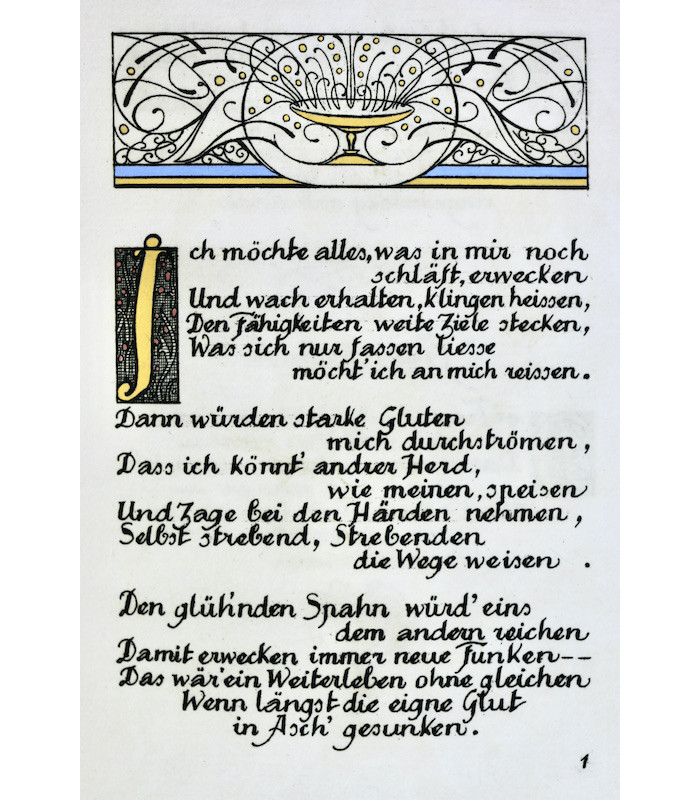 Ich möchte alles, was in mir noch
schläft, erwecken
Und wach erhalten, klingen heissen,
Den Fähigkeiten weite Ziele stecken,
Was sich nur fassen liesse
möcht' ich an mich reissen.
Dann würden starke Gluten
mich durchströmen,
Dass ich könnt' andrer Herd,
wie meinen, speisen
Und Zage bei den Händen nehmen,
Selbst strebend, Strebenden
die Wege weisen.
Den glüh'nden Spahn würd' eins
dem andern reichen
Damit erwecken immer neue Funken--
Das wär' ein Weiterleben ohne gleichen
Wenn längst die eigne Glut
in Asch' gesunken.
1